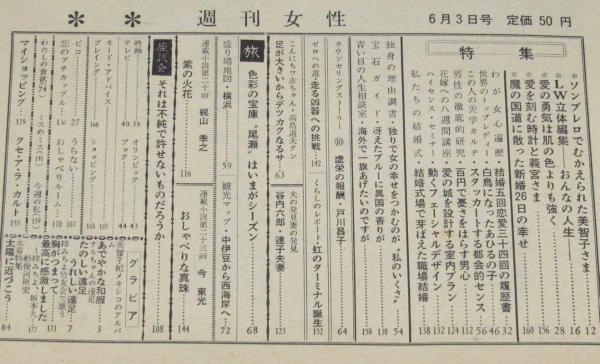 週刊女性
6月3日号 定価50円
特集
*ソンブレロでむかえられた美智子さま 12
*LW立体編集――おんなの人生 16
*愛の勇気は肌の色よりも強く 28
*愛を刻む時計と義宮さま 156
*魔の国道に散った新婚26日の幸せ 160
わが女心遍歴 結婚五回恋愛三十四回の履歴書 32
世界のトップレディー 白鳥になったあひるの子 46
この人の美学カルテ・スタートする都会的センス 56
男性の徹底的研究 百円で憂さをはらす男心 112
花嫁への八週間講座 愛の城を設計する室内プラン 124
ハイセンス・セミナー 動くフェーシャルデザイン 132
私たちの結婚式 結婚式場で芽ばえた職場結婚 138
独身の理由調書・独りで女の幸せをつかむのが“私のいくさ” 54
宝石ガイド・冴えたブルーに異国の香りが 130
青い目の人生相談室・海外で一旗あげたいのですが 150
カウンセリングストーリー⑩ 虚栄の報酬・戸川昌子 64
ゼロへの道・走る凶器への挑戦 142
くらしのレポート 虹のターミナル誕生 152
こんにちワ赤ちゃん・高島道夫クン
足が大きいからデッカクなるサ 63
夫の発見妻の発見
谷内六郎・達子夫妻 123
旅 色彩の宝庫・尾瀬・はいまがシーズン 68
盛り場地図・横浜 59
観光マップ・中伊豆から西海岸へ 72
連載小説第二十一回 梶山季之
紫の火花 116
連載小説第二十三回 今東光
おしゃべりな真珠 144
座談会 それは不純で許せないものだろうか 108
映画 38
テレビ 40
モード・アドバイス
プレイング 168
オリンピック 43
スター 44
ショッピング
ピコ 27
恋のプチカップル 136
うらない
おしゃべりルーム
わたしの食欲(74)
ミスのミス(14)
今週の私(159)
マイショッピング 129
クオ・ア・ラ・カルト
グラビア
美智子妃メキシコのアルバム
あでやかな和服 3
ナルちゃんの遠足
たのしい遠足
うれしい遠足 7
胸がつまって 171
最高に感激しました 172
太陽に近づこう 84